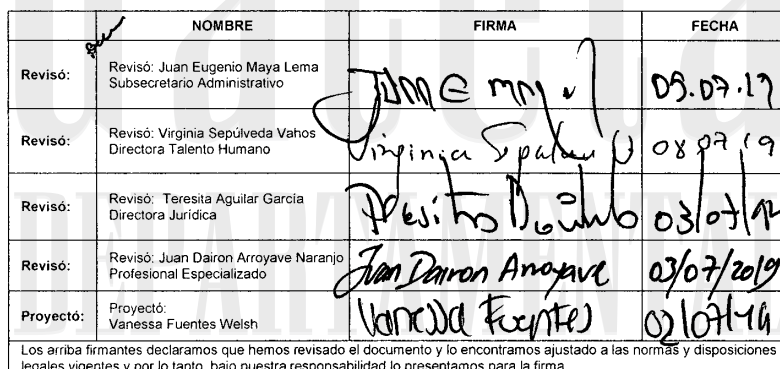 NOMBRE FIRMA FECHA
Revisó: Revisó: Juan Eugenio Maya Lema
Subsecretario Administrativo
09.07.19
Revisó: Revisó: Virginia Sepúlveda Vahos
Directora Talento Humano
Virginia 08 07 19
Revisó: Revisó: Teresita Aguilar García
Directora Jurídica
03/07/
Revisó: Revisó: Juan Dairon Arroyave Naranjo
Profesional Especializado
Juan Dairon Arroyave 03/07/2019
Proyectó: Proyectó:
Vanessa Fuentes Welsh
Vanessa Fuentes 02/07/
Los arriba firmantes declaramos que hemos revisado el documento y lo encontramos ajustado a las normas y disposiciones
legales vigentes y por lo tanto, bajo nuestra responsabilidad lo presentamos para la firma.